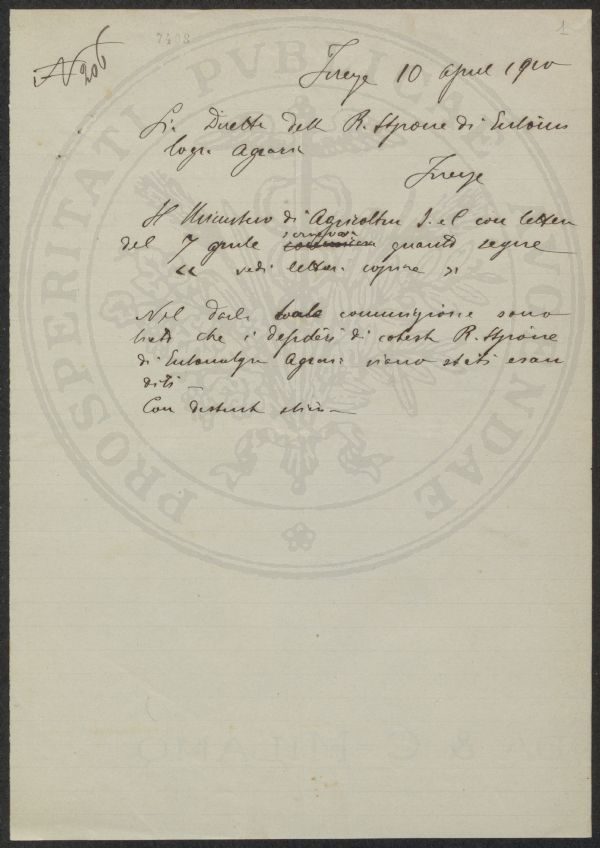 N 206
7408
1
Firenze 10 aprile 1910
Sig. Direttore della R. Stazione di Entomo
logia Agraria
Firenze
Il Ministero di Agricoltura I. e C. con lettera
del 7 aprile scriveva comunicava quanto segue
« vedi lettera copiare »
Nel darle tale comunicazione sono
lieto che i desideri di cotesta R. Stazione
di Entomologia Agraria siano stati esau
diti —
Con distinta stima —
PROSPERITATI PVBLICAE
& C MILANO